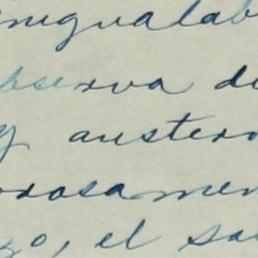 inigualab
bserva de
y austero
rosamen
zo, el sa